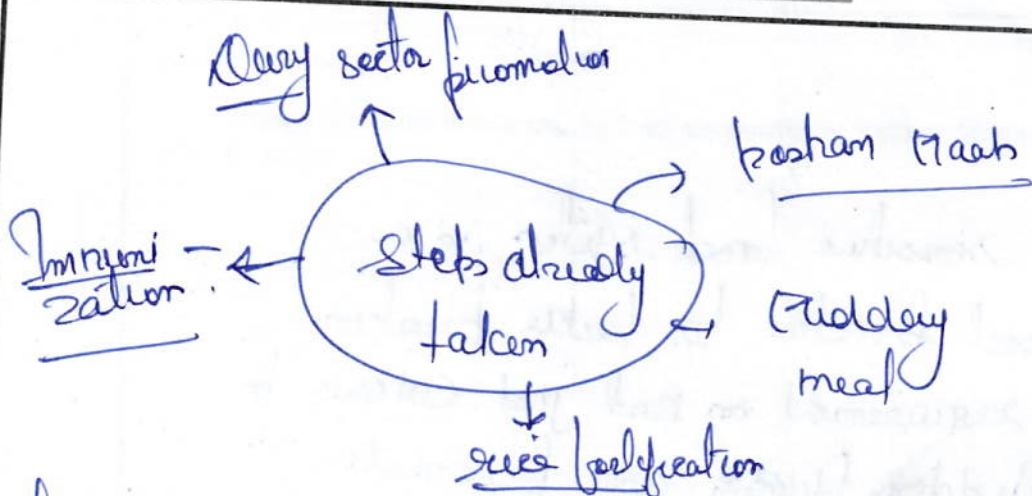 Dairy sector promotion
Poshan Maah
Immuni
zation.
Steps already
taken
Midday
meal
rice fortification